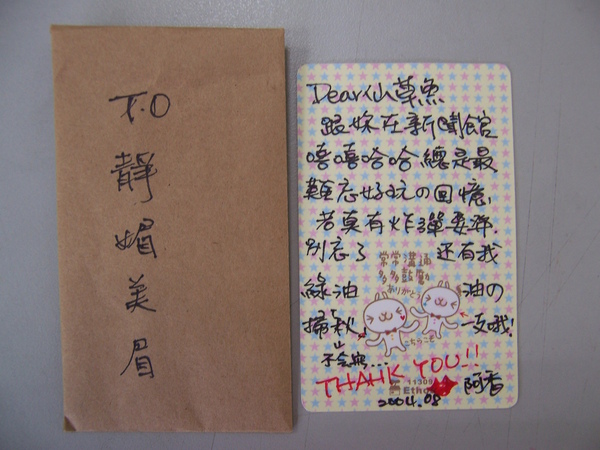 T.O
靜
媚
美
眉
Dear 仙草魚
跟妳在新聞館
嘻嘻哈哈總是最
難忘好玩の回憶,
若真有炸彈要
別忘了 還有我
常常溝通
多多鼓勵
ありがとう
綠油 油の
掃 一支哦!
こちゃっこも
不会
THANK YOU!!
11309
Etho
阿香
2004.08